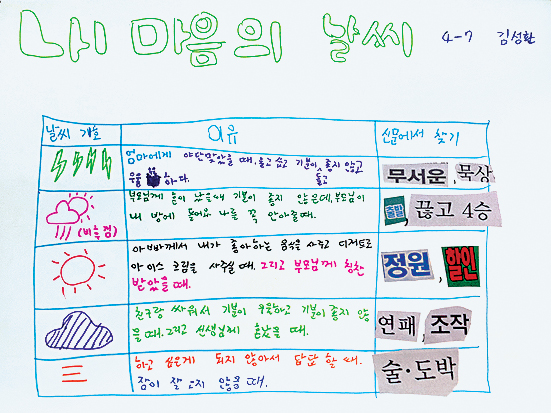 내 마음의 날씨 4-7 김성환
날씨 기호 이유 신문에서 찾기
엄마에게 야단맞았을 때, 울고 싶고 기분이 좋지 않고
우울 하다. 울고
무서운, 묵상
(비눈 점)
부모님께 혼이 났을때 기분이 좋지 않은데, 부모님이
내 방에 들어와 나를 꼭 안아줄때.
출발, 끊고 4승
아빠께서 내가 좋아하는 음식을 사주고 디저트로
아이스 크림을 사주실 때. 그리고 부모님께 칭찬
받았을 때.
정원, 할인
친구랑 싸워서 기분이 우울하고 기분이 좋지 않
을 때. 그리고 선생님께 혼났을 때.
연패, 조작
하고 싶은게 되지 않아서 답답 할 때.
잠이 잘 오지 않을 때.
술·도박